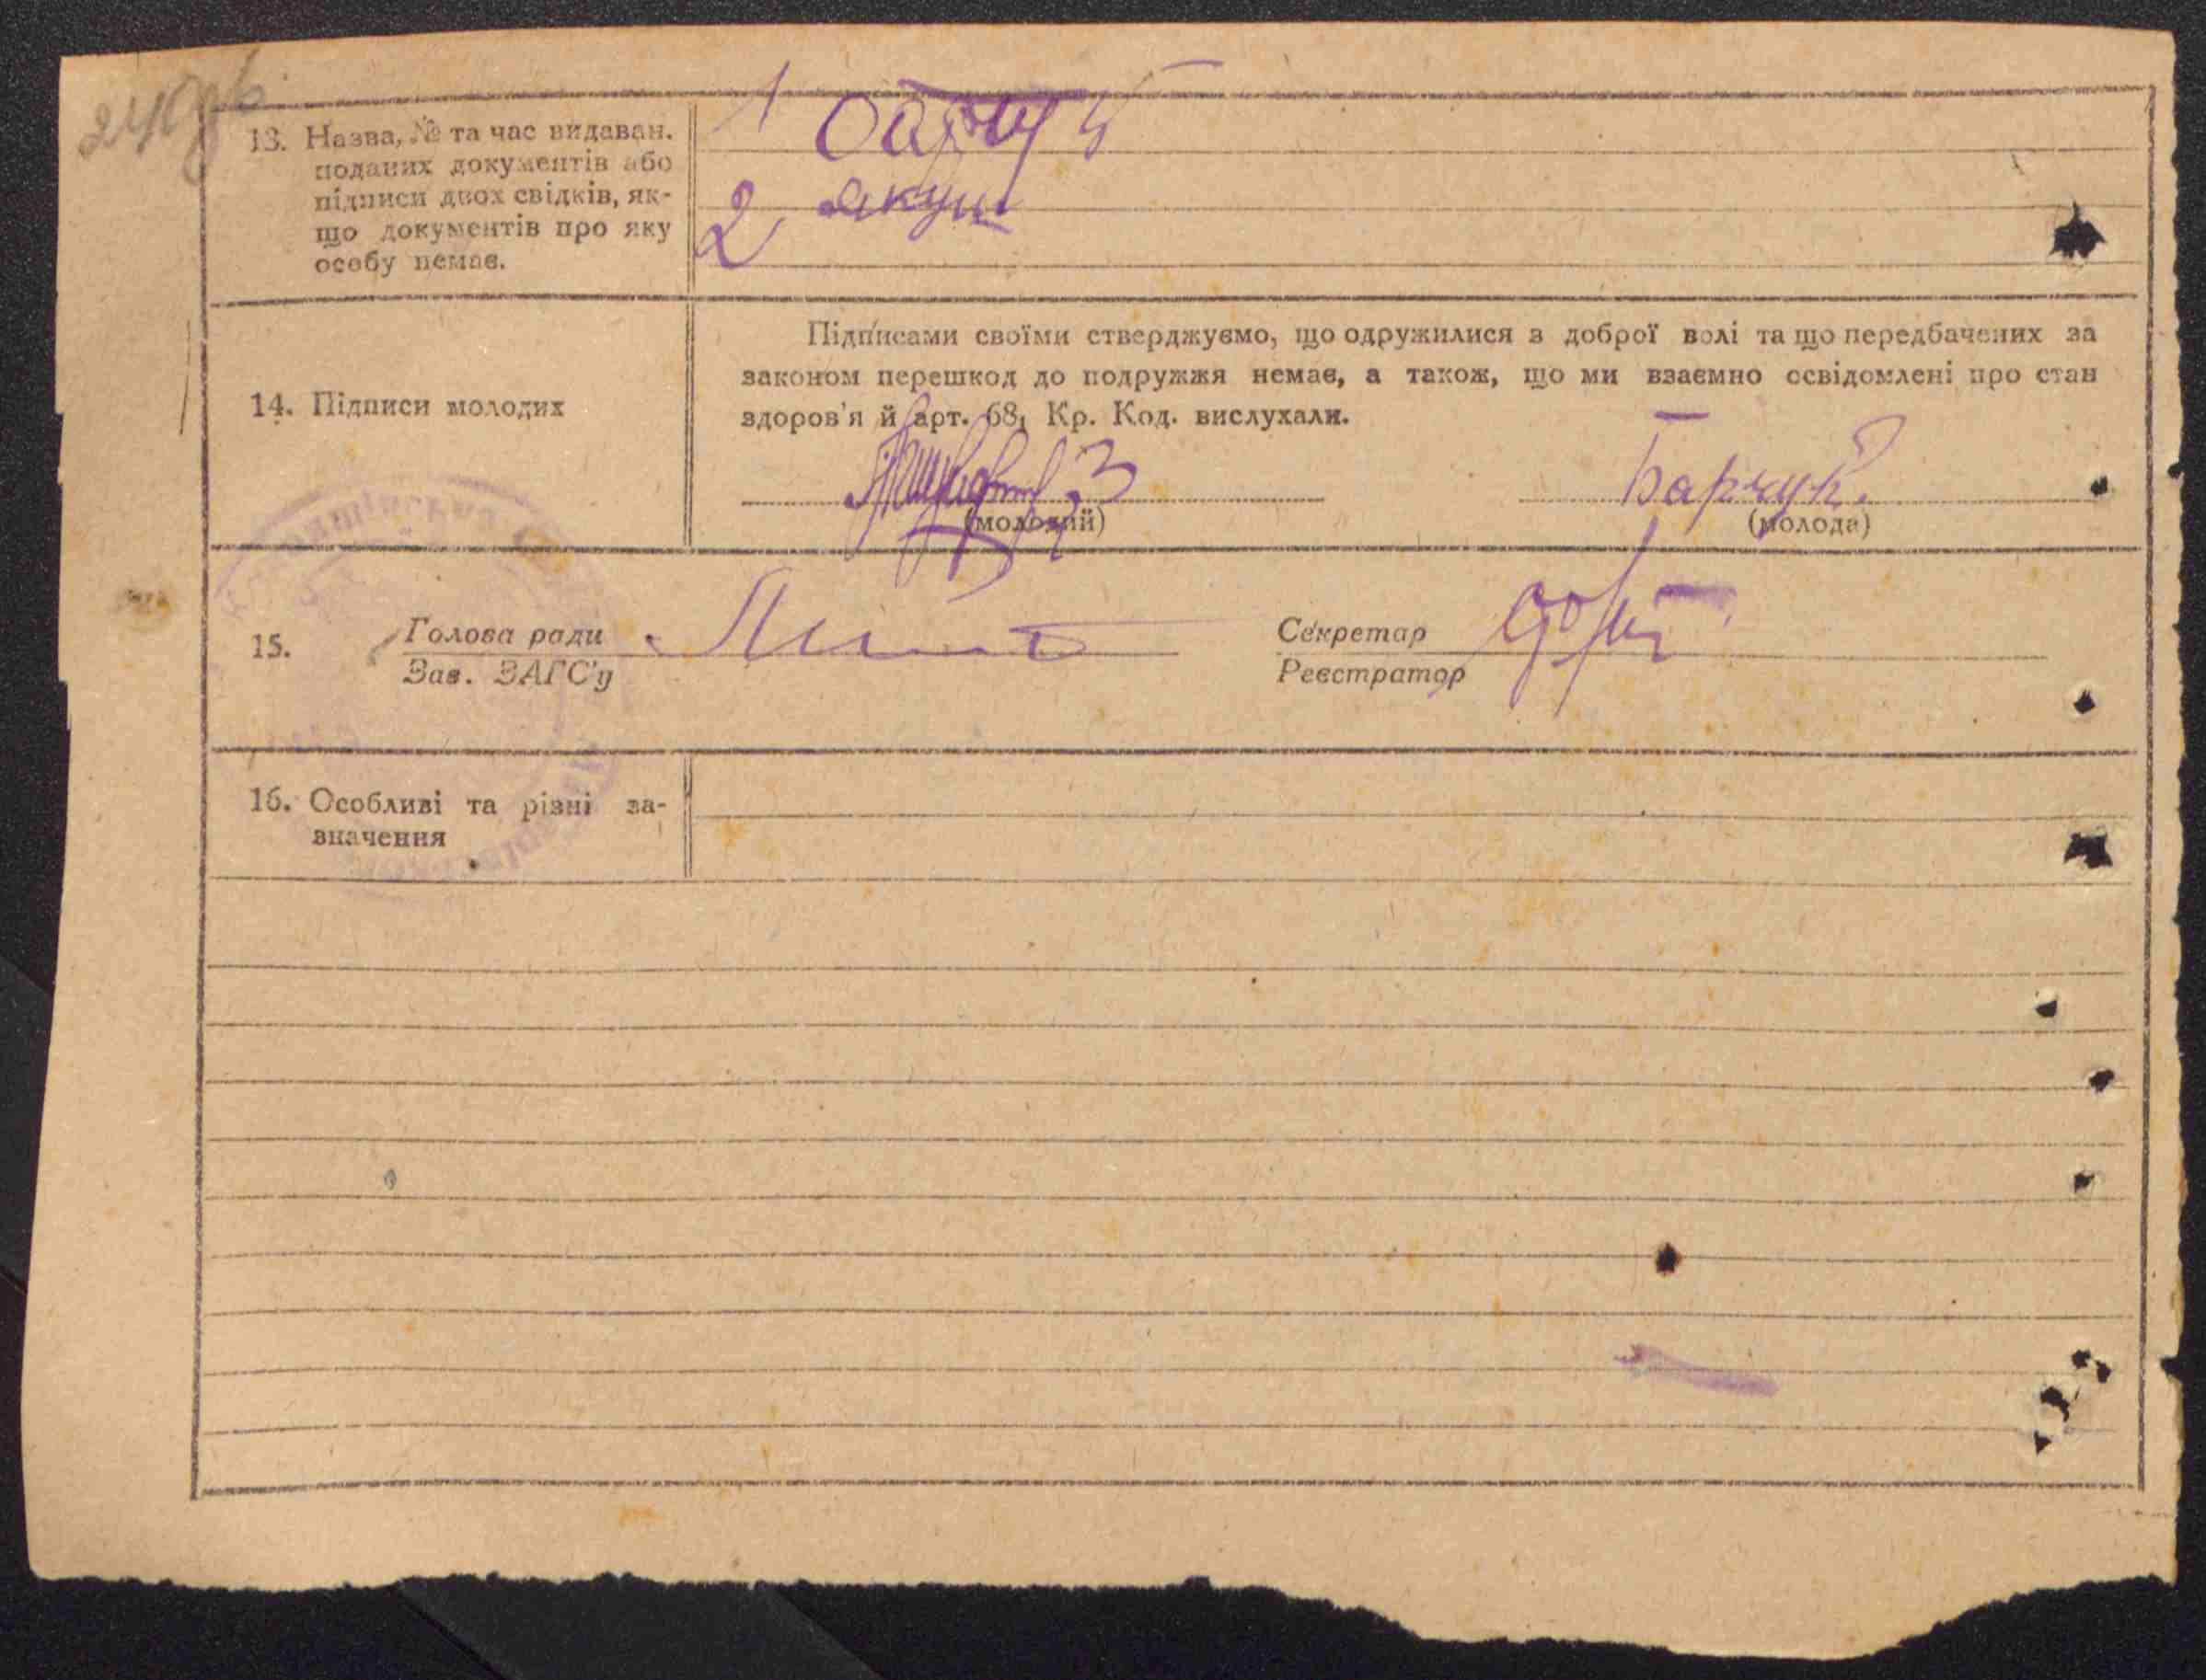 13. Назва, № та час видаван.
поданих документів або
підписи двох свідків, як-
що документів про яку
особу немає.
1
2 якуш
14. Підписи молодих
Підписами своїми стверджуємо, що одружилися з доброї волі та що передбачених за
законом перешкод до подружжя немає, а також, що ми взаємно освідомлені про стан
здоров'я й арт. 68₁ Кр. Код. вислухали.
Барчук.
(молодий) (молода)
15. Голова ради Секретар
Зав. ЗАГС'у Реєстратор
16. Особливі та різні за-
значення